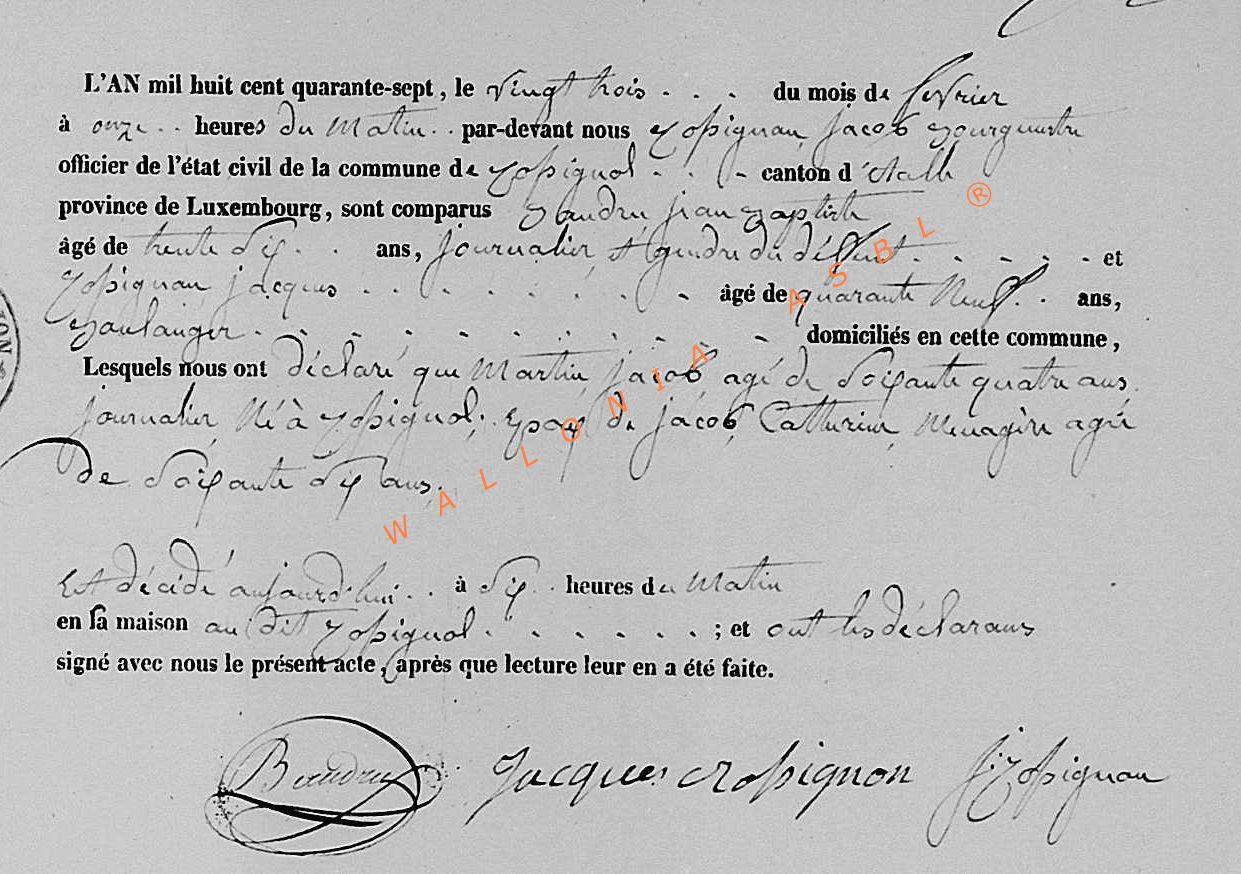 L'AN mil huit cent quarante-sept, le vingt trois . . . du mois de février
à onze . . heures du Matin . . par-devant nous Rossignon Jacob Bourgmestre
officier de l'état civil de la commune de Rossignol . . . canton d'Étalle
province de Luxembourg, sont comparus Baudru jean Baptiste
âgé de trente Six . . ans, journalier, et gendre du défunt . . . . . et
Rossignon jacques . . . . . . . . âgé de quarante Neuf . . ans,
Boulanger . . . . . . . . . . domiciliés en cette commune,
Lesquels nous ont déclaré que Martin jacob agé de Soixante quatre ans
journalier Né à Rossignol, Epoux de jacob, Catherine, Menagère agée
de Soixante Six ans.
Est décédé aujourd'hui . . à Six . . heures du Matin
en sa maison au dit Rossignol . . . . . . ; et ont les déclarans
signé avec nous le présent acte, après que lecture leur en a été faite.
Baudru Jacques Rossignon J. Rossignon
WALLONIA ASBL ®
ION